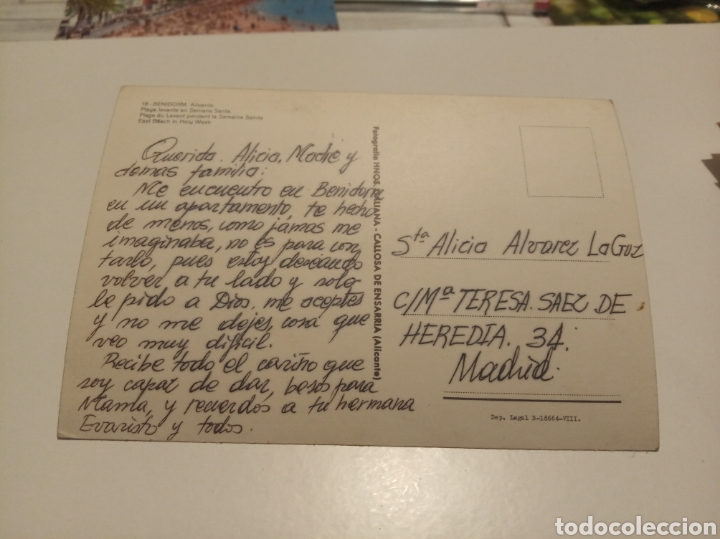 18 - BENIDORM. Alicante
Playa levante en Semana Santa
Plage du Levant pendant la Semaine Sainte
East Beach in Holy Week
Querida Alicia, Madre y
demas familia:
Me encuentro en Benidorm
en un apartamento, te hecho
de menos, como jamas me
imaginaba, no es para con
tarlo, pues estoy deseando
volver a tu lado y solo
le pido a Dios, me aceptes
y no me dejes, cosa que
veo muy dificil.
Recibe todo el cariño que
soy capaz de dar, besos para
Mamá, y recuerdos a tu hermana
Evaristo y todos.
Fotografia HNOS. - CALLOSA DE ENSARRIA (Alicante)
Sta Alicia Alvarez
C/Mª TERESA SAEZ DE
HEREDIA. 34.
Madrid
Dep. Legal B-18664-VIII.
todocoleccion